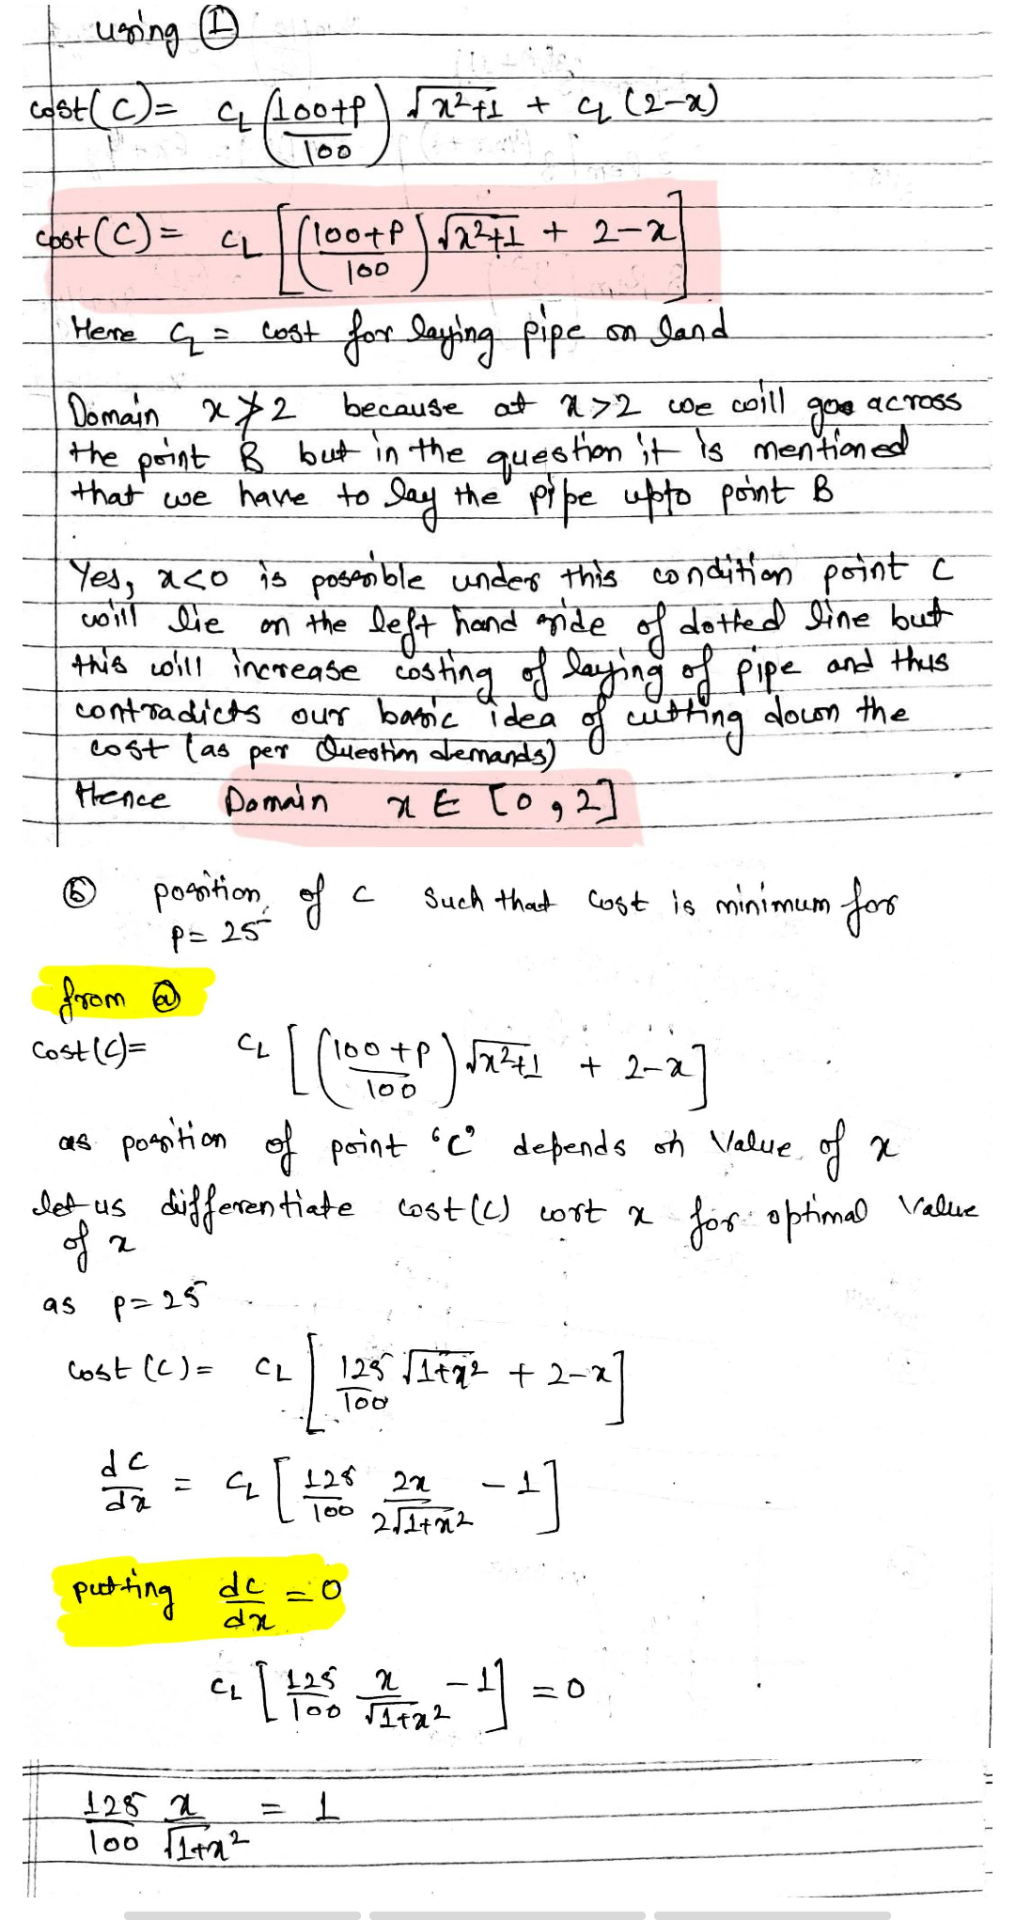 using Ⓘ
cost(C) = C_L ((100+P)/100) √(x²+1) + C_L (2-x)
cost(C) = C_L [((100+P)/100) √(x²+1) + 2-x]
Here C_L = cost for laying pipe on land
Domain x ≯ 2 because at x>2 we will goe across
the point B but in the question it is mentioned
that we have to lay the pipe upto point B
Yes, x<0 is possible under this condition point C
will lie on the left hand side of dotted line but
this will increase costing of laying of pipe and thus
contradicts our basic idea of cutting down the
cost (as per Question demands)
Hence Domain x ∈ [0, 2]
ⓑ position of C such that cost is minimum for
P = 25
from ⓐ
Cost(C) = C_L [((100+P)/100) √(x²+1) + 2-x]
as position of point 'C' depends on Value of x
let us differentiate cost(C) wrt x for optimal value
of x
as P = 25
Cost(C) = C_L [125/100 √(1+x²) + 2-x]
dC/dx = C_L [125/100 2x/(2√(1+x²)) - 1]
putting dC/dx = 0
C_L [125/100 x/√(1+x²) - 1] = 0
125/100 x/√(1+x²) = 1